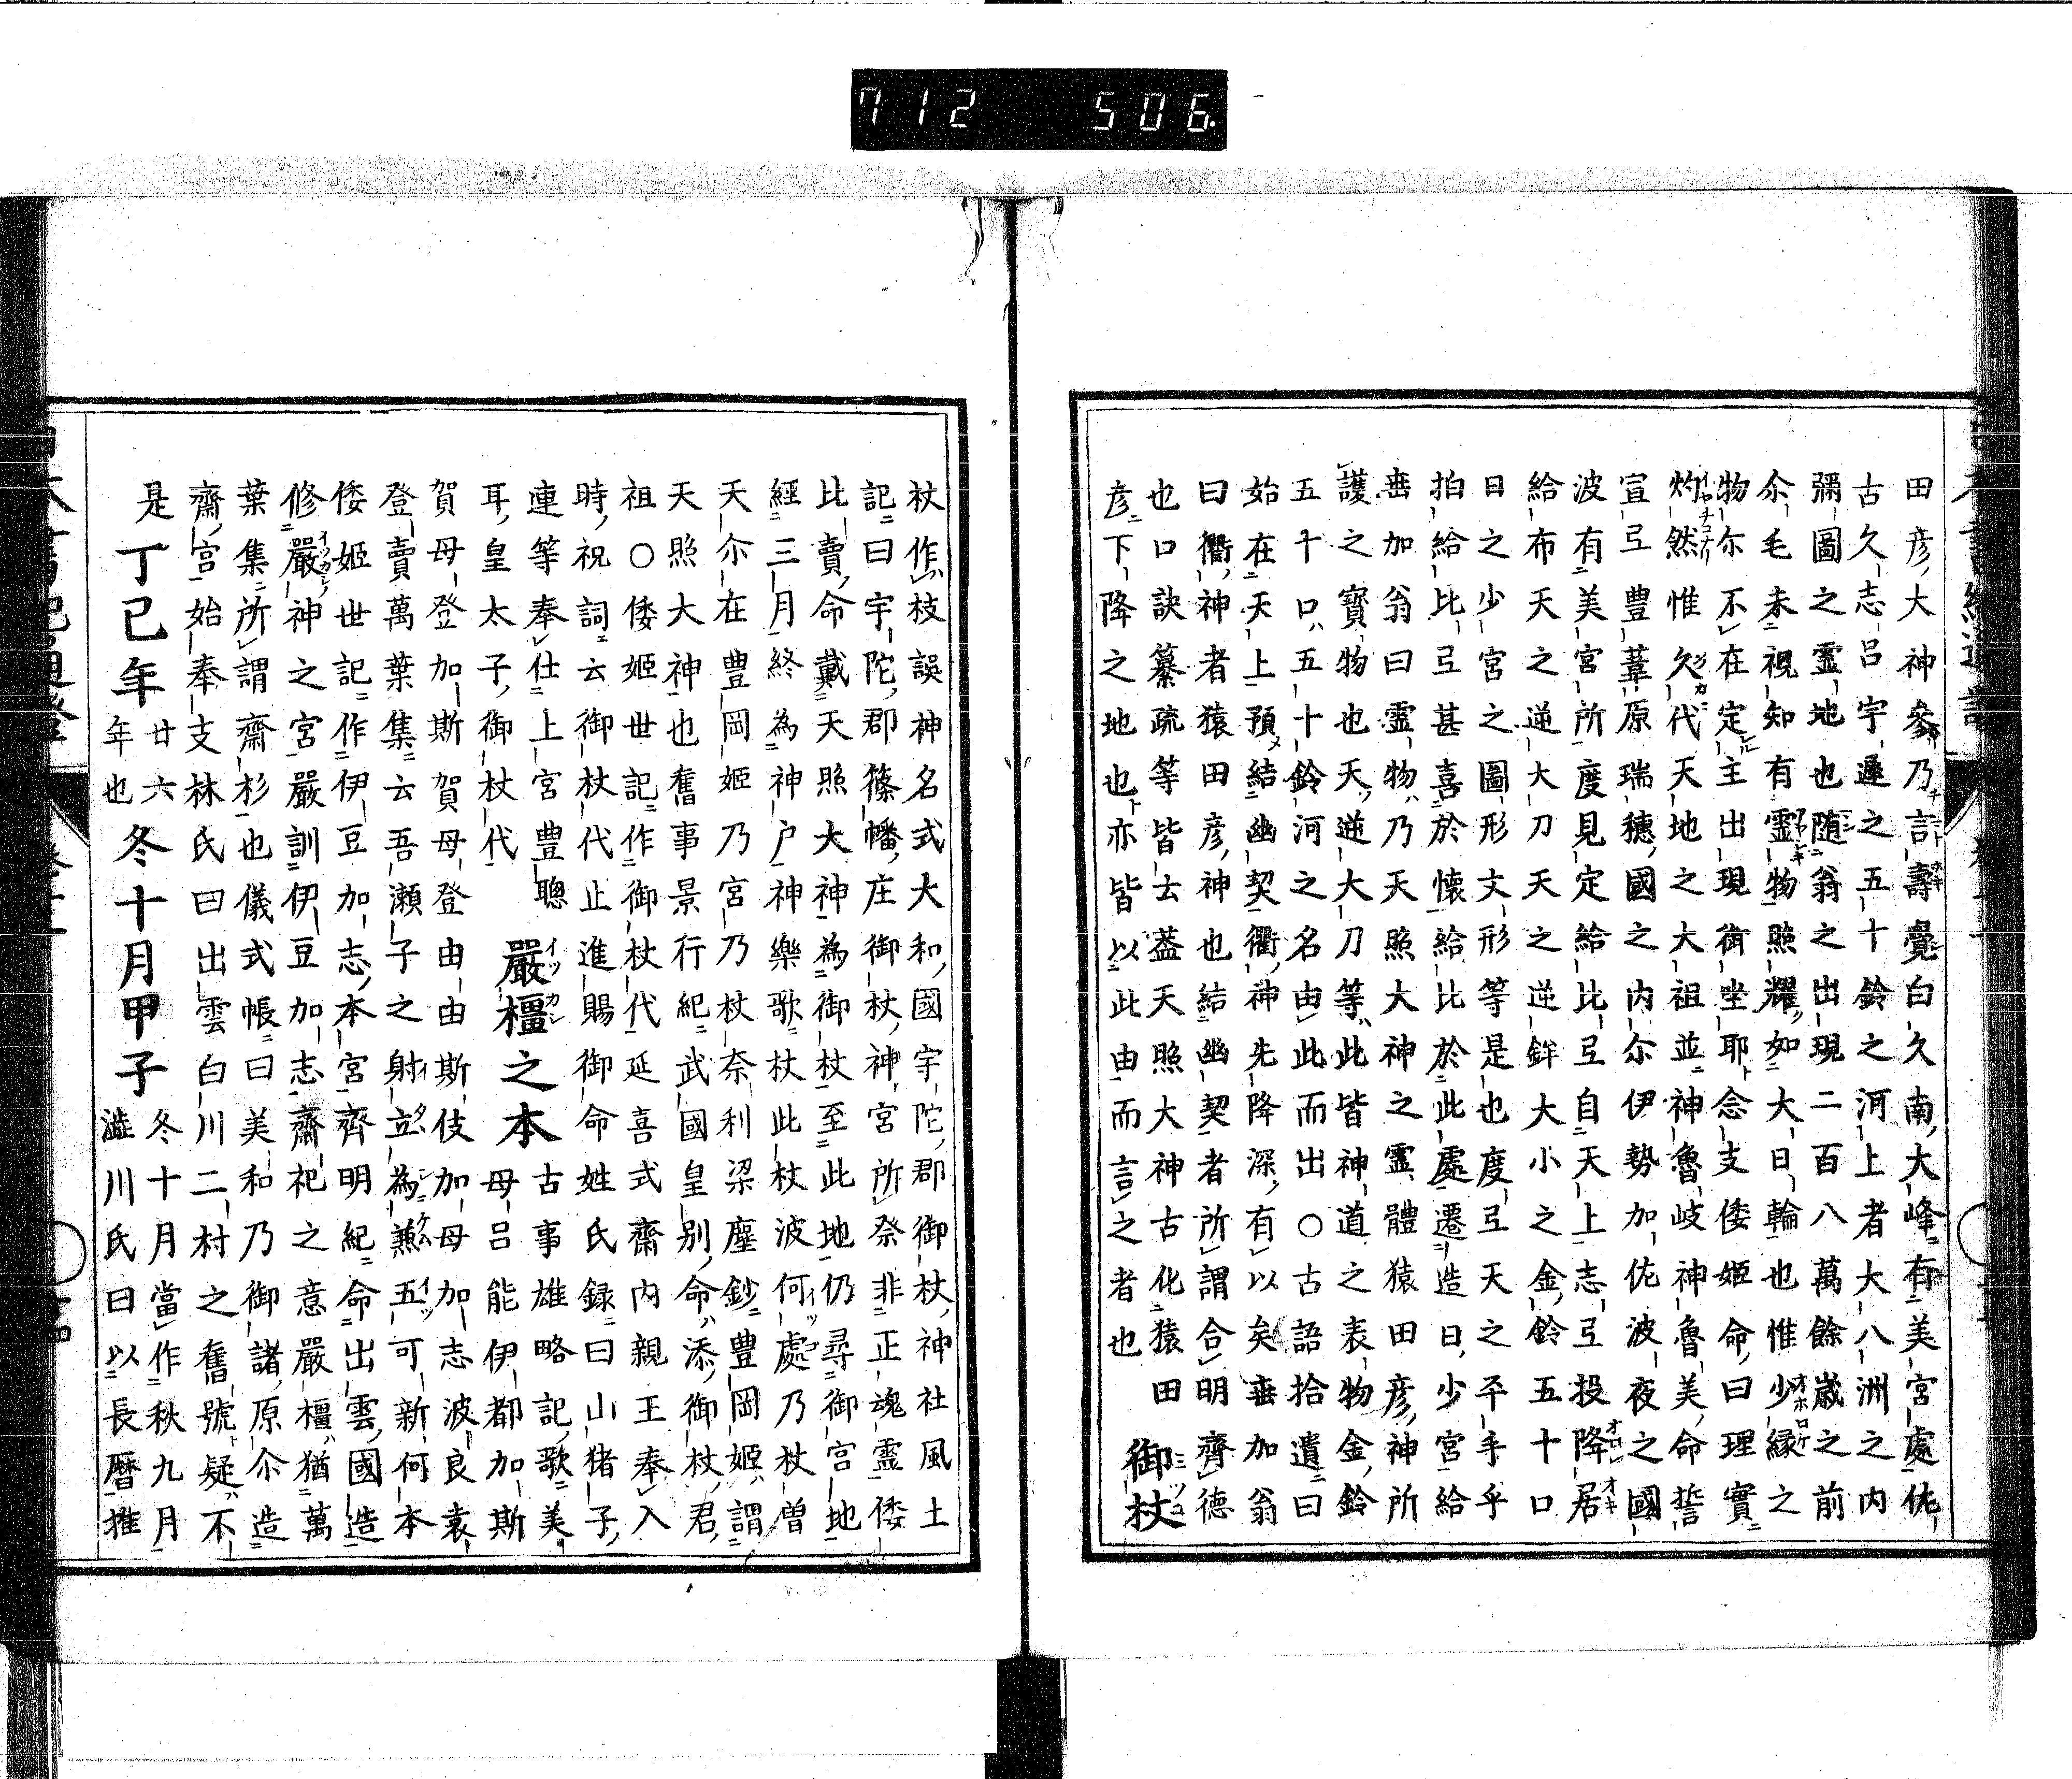 712 506
田彦大神參乃言壽覺白久南大峰有美宮處佐
古久志呂宇遲之五十鈴之河上者大八洲之内
彌圖之霊地也隨翁之出現二百八萬餘歳之前
尓毛未視知有霊物照耀如大日輪也惟少縁之
物尓不在定主出現御坐耶念支倭姫命曰理實
灼然惟久代天地之大祖並神魯岐神魯美命誓
宣弖豊葦原瑞穗國之内尓伊勢加佐波夜之國
波有美宮所度見定給比弖自天上志弖投降居
給布天之逆大刀天之逆鉾大小之金鈴五十口
日之少宮之圖形文形等是也度弖天之平手乎
拍給比弖甚喜於懷給比於此處遷造日少宮給
埀加翁曰霊物乃天照大神之霊體猿田彦神所
護之寳物也天逆大刀等此皆神道之表物金鈴
五十口五十鈴河之名由此而出〇古語拾遺曰
始在天上預結幽契衢神先降深有以矣埀加翁
曰衢神者猿田彦神也結幽契者所謂合明齊德
也口訣纂疏等皆云葢天照大神古化猿田
彦下降之地也亦皆以此由而言之者也 御杖
杖作枝誤神名式大和國宇陀郡御杖神社風土
記曰宇陀郡篠幡庄御杖神宮所祭非正魂霊倭
比賣命戴天照大神為御杖至此地仍尋御宮地
經三月終為神戸神樂歌杖此杖波何處乃杖曽
天尓在豊岡姫乃宮乃杖奈利梁塵鈔豊岡姫謂
天照大神也舊事景行紀武國皇別命添御杖君
祖〇倭姫世記作御杖代延喜式齋内親王奉入
時祝詞云御杖代止進賜御命姓氏録曰山猪子
連等奉仕上宮豊聰耳皇太子御杖代 嚴橿之本 古事雄略記歌美
母呂能伊都加斯
賀母登加斯賀母登由由斯伎加母加志波良袁
登賣萬葉集云吾瀬子之射立為兼五可新何本
倭姫世記作伊豆加志本宮齊明紀命出雲國造
修嚴神之宮嚴訓伊豆加志齋祀之意嚴橿猶萬
葉集所謂齋杉也儀式帳曰美和乃御諸原尓造
齋宮始奉支林氏曰出雲白川二村之舊號疑不
是丁巳年 廿六年也 冬十月甲子 冬十月當作秋九月
澁川氏曰以長曆推